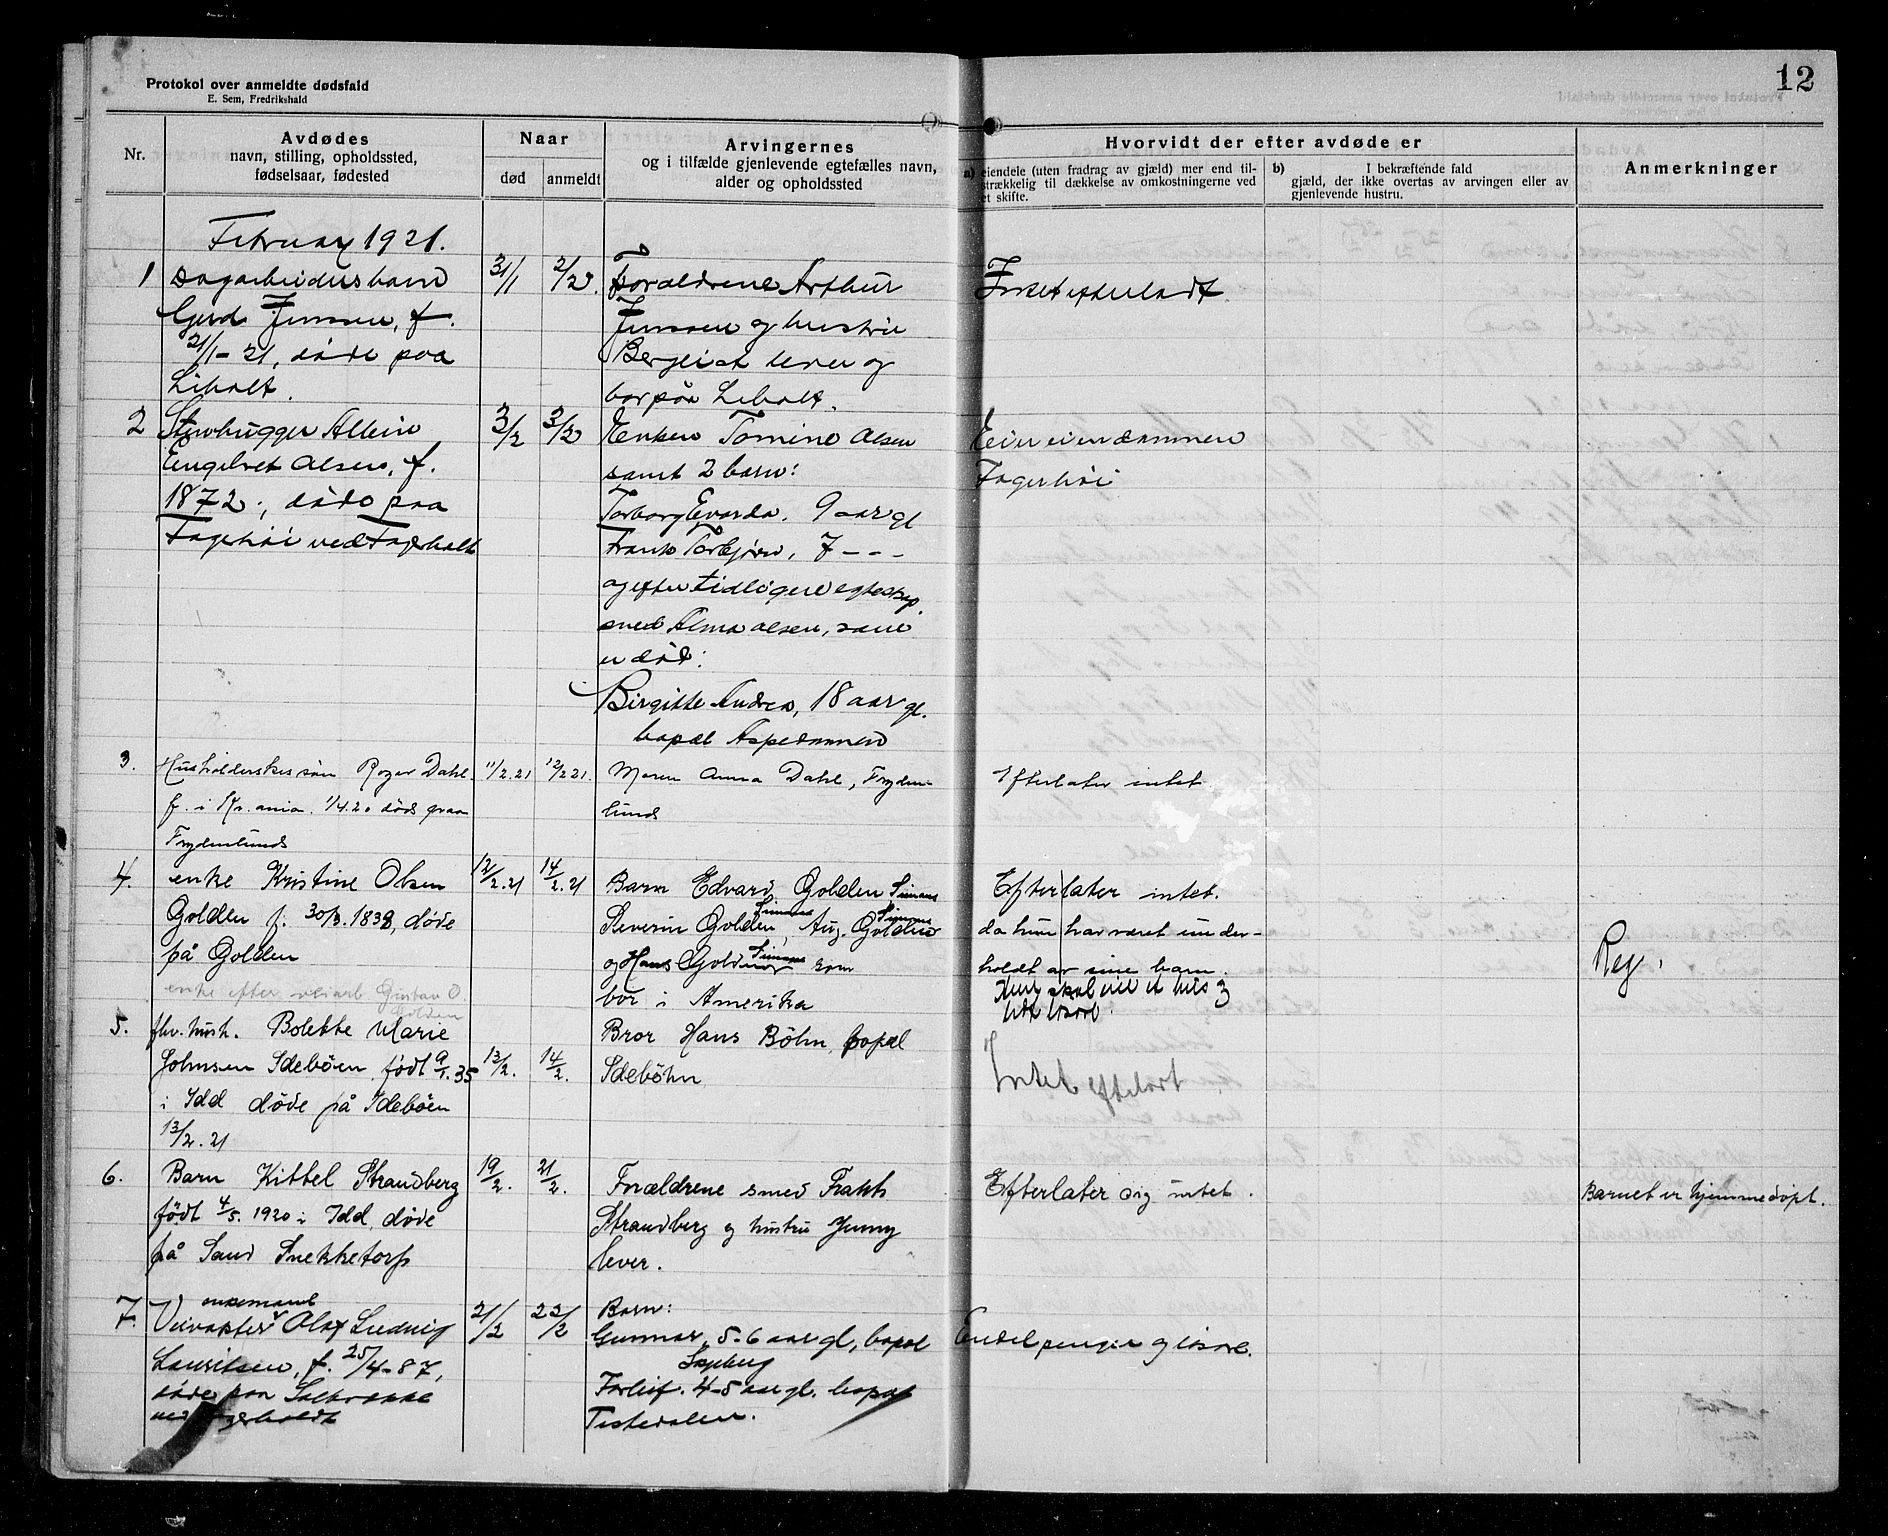 Protokol over anmeldte dødsfald
E. Sem, Fredrikshald
12
Nr.
Avdødes
navn, stilling, opholdssted,
fødselsaar, fødested
Naar
død
anmeldt
Arvingernes
og i tilfælde gjenlevende egtefælles navn,
alder og opholdssted
Hvorvidt der efter avdøde er
a) eiendele (uten fradrag av gjæld) mer end til-
strækkelig til dækkelse av omkostningerne ved
et skifte.
b) I bekræftende fald
gjæld, der ikke overtas av arvingen eller av
gjenlevende hustru.
Anmerkninger
Februar 1921.
1
Dagarbeidersbarn
Gerd Jensen, f.
21/1-21, døde paa
Liholt.
31/1
2/2.
Forældrene Arthur
Jensen og hustru
Bergliot lever og
bor på Liholt.
Intet efterladt.
2
Stenhugger Albin
Engelbret Olsen, f.
1872, døde paa
Fagerhøi ved Fagerholt
3/2
3/2
Enken Tomine Olsen
samt 2 barn:
Torborg Evarda, 9 aar gl
Frank Torbjørn, 7 - - -
og efter tidligere egteskap
med Alma Olsen, som
er død:
Birgitte Andrea, 18 aar gl.
bopæl Aspedammen
Eier eiendommen
Fagerhøi
3.
Husholderskes søn Roger Dahl
f. i Kr.ania. 1/4.20 død paa
Frydenlund
11/2.21
12/2 21.
Maren Anna Dahl, Fryden-
lund
Efterlater intet.
4.
enke Kristine Olsen
Golden f. 30/3.1838, døde
på Golden
enke efter Gustav O.
Golden
12/2.21
14/2.21
Barn Edvard Golden Simens
Severin Golden Simens, Aug. Golden Simens
og Hans Golden Simens som
bor i Amerika
Efterlater intet.
da hun har været under-
holdt av sine barn.
Hun skal eie et hus og
litt løsøre.
Reg.
5.
fhv. hush. Bolette Marie
Johnsen Idebøen født 9/1.35
i Idd døde på Idebøen
13/2.21
13/2.
14/2.
Bror Hans Bøhn, bopæl
Idebøhn
Intet efterlatt
6.
Barn Kittel Strandberg
født 4/5.1920 i Idd døde
på Sand Snekketorp
19/2.
21/2.
Forældrene smed
Strandberg og hustru Jenny
lever.
Efterlater sig intet.
Barnet er hjemmedøpt.
7.
enkemand
Veivokter Olaf Ludvig
Lauritsen, f. 25/4-87,
døde paa
ved Fagerholdt
21/2
22/2
Barn:
Gunnar, 5-6 aar gl, bopæl
Torleif. 4-5 aar gl. bopæl
Tistedalen.
Endel penger og løsøre.